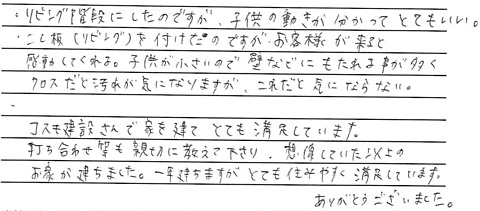 ・リビング階段にしたのですが、子供の動きが分かってとてもいい。
・こし板(リビング)を付けたのですがお客様が来ると
感動してくれる。子供が小さいので壁などにもたれる事が多く
クロスだと汚れが気になりますが、これだと気にならない。
・
コスモ建設さんで家を建てとても満足しています。
打ち合わせ等も親切に教えて下さり、想像していた以上の
お家が建ちました。一年建ちますがとても住みやすく満足しています。
ありがとうございました。